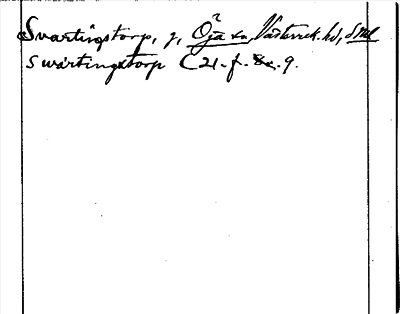 Svartingstorp, g, Öja sn, Västerrek. hd, Sml
Swartingxtorp C 21. f. 9.